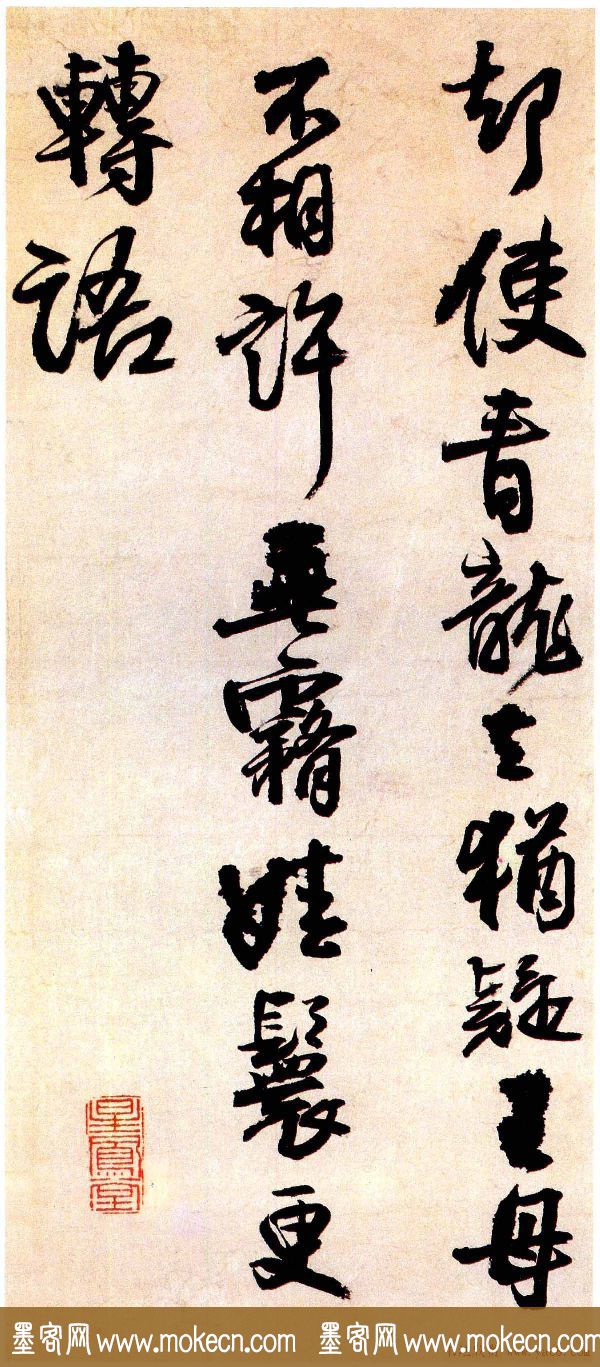 却使青龍去猶疑王母
不相許垂霧娃鬟更
轉語
墨客网 www.mokecn.com 墨客网 www.mokecn.com